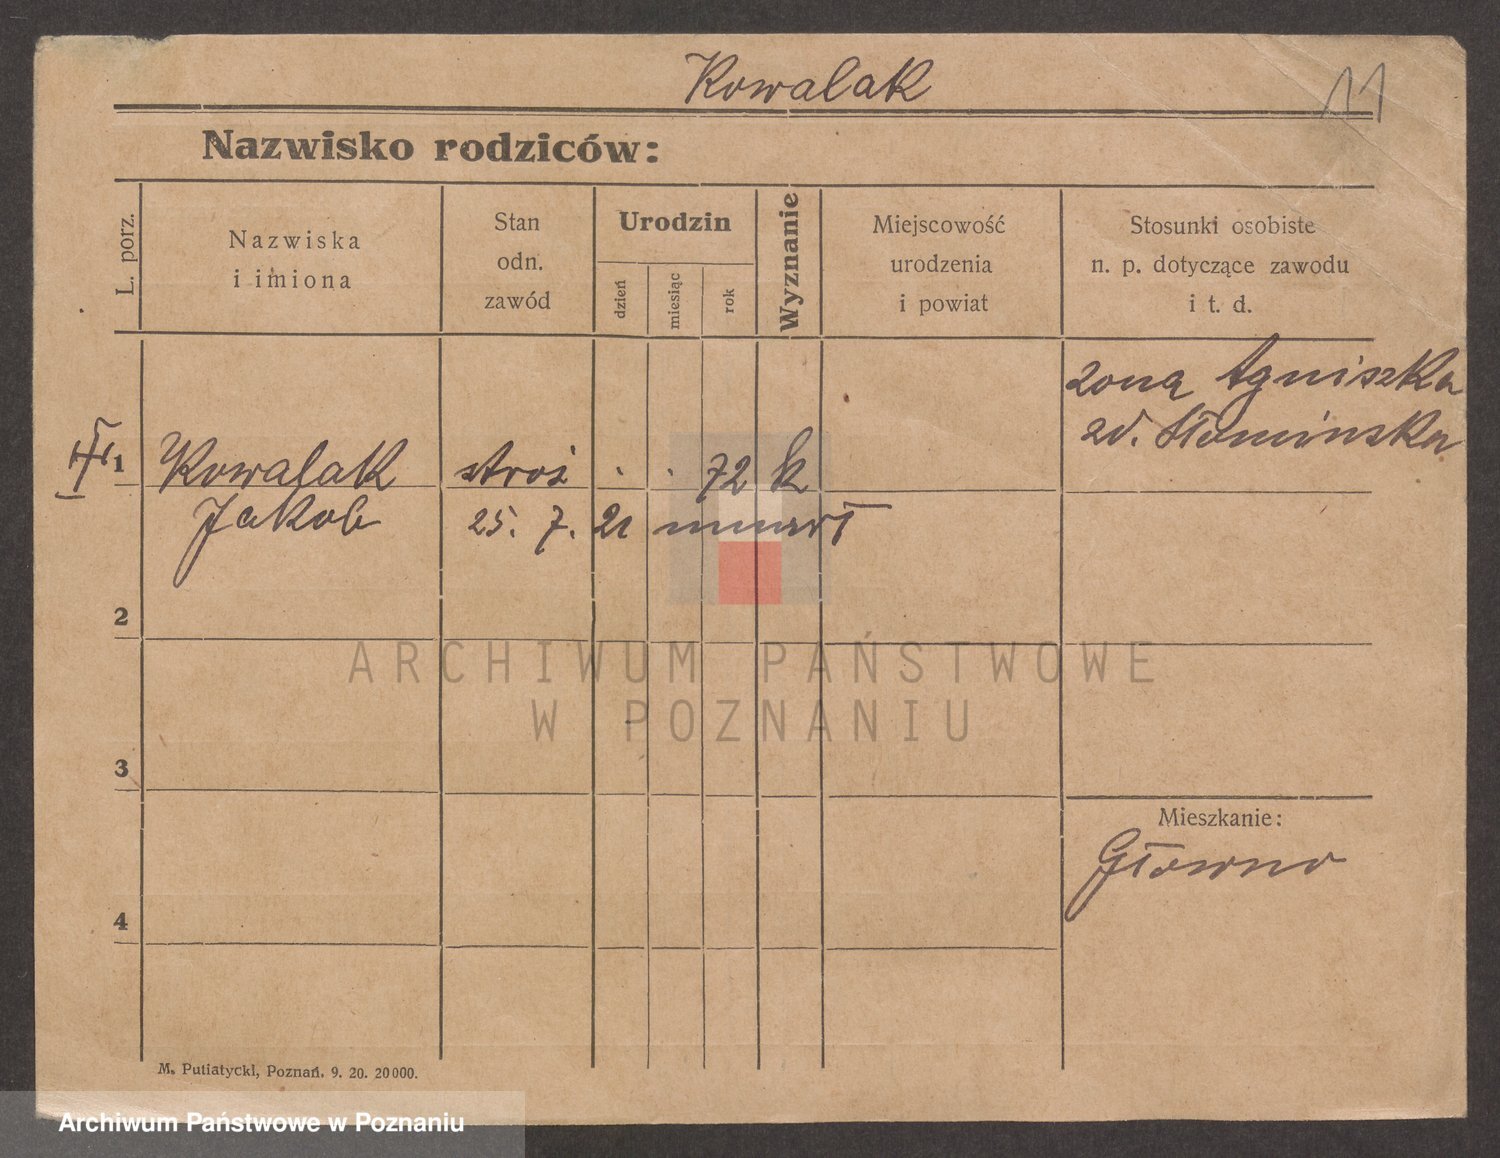 Kowalak
11
Nazwisko rodziców:
L. porz.
Nazwiska
i imiona
Stan
odn.
zawód
Urodzin
dzień
miesiąc
rok
Wyznanie
Miejscowość
urodzenia
i powiat
Stosunki osobiste
n. p. dotyczące zawodu
i t. d.
żona Agniszka
zd. Słomińska
1 Kowalak stróż . . 72 k
Jakob 25. 7. 21 umarł
2
3
4
Mieszkanie:
Głowno
ARCHIWUM PAŃSTWOWE
W POZNANIU
M. Putiatycki, Poznań. 9. 20. 20000.
Archiwum Państwowe w Poznaniu